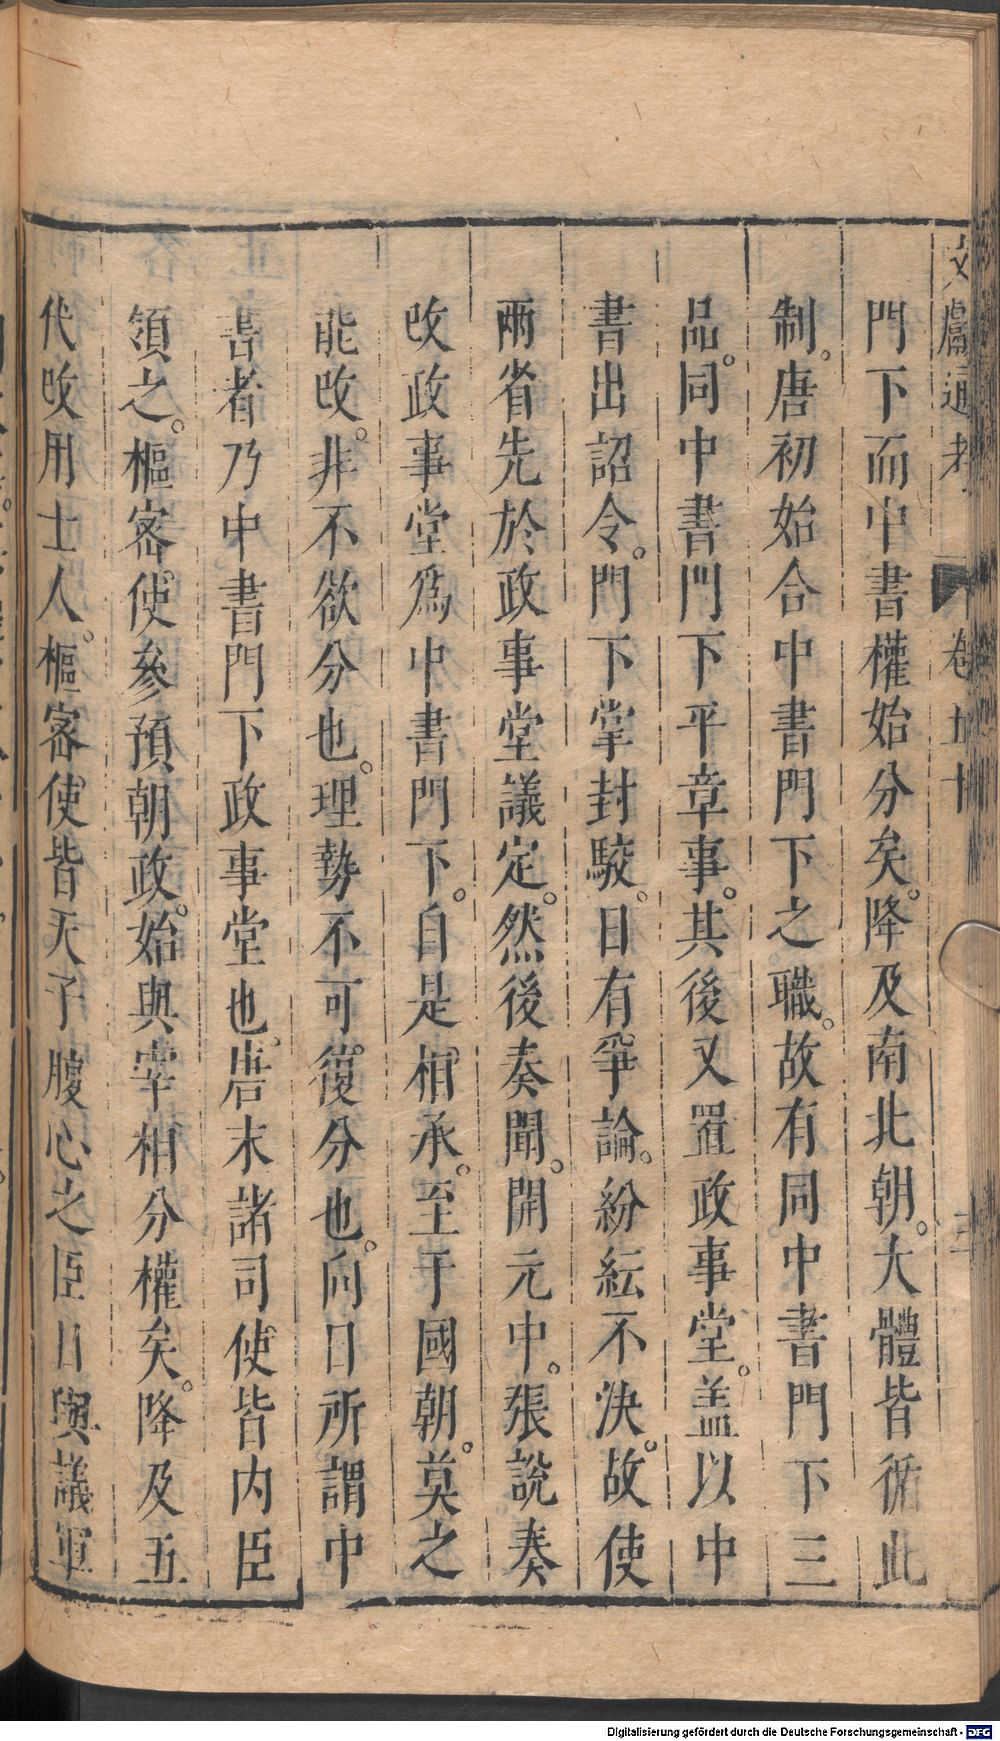 文獻通考 卷五十
門下而中書權始分矣。降及南北朝。大體皆循此
制。唐初始合中書門下之職。故有同中書門下三
品。同中書門下平章事。其後又置政事堂。盖以中
書出詔令。門下掌封駮。日有爭論。紛紜不決。故使
兩省先於政事堂議定。然後奏聞。開元中。張說奏
改政事堂爲中書門下。自是相承。至于國朝。莫之
能改。非不欲分也。理勢不可復分也。向日所謂中
書者乃中書門下政事堂也。唐末諸司使皆内臣
領之。樞密使參預朝政。始與宰相分權矣。降及五
代改用士人。樞密使皆天子腹心之臣日與議軍
Digitalisierung gefördert durch die Deutsche Forschungsgemeinschaft - DFG